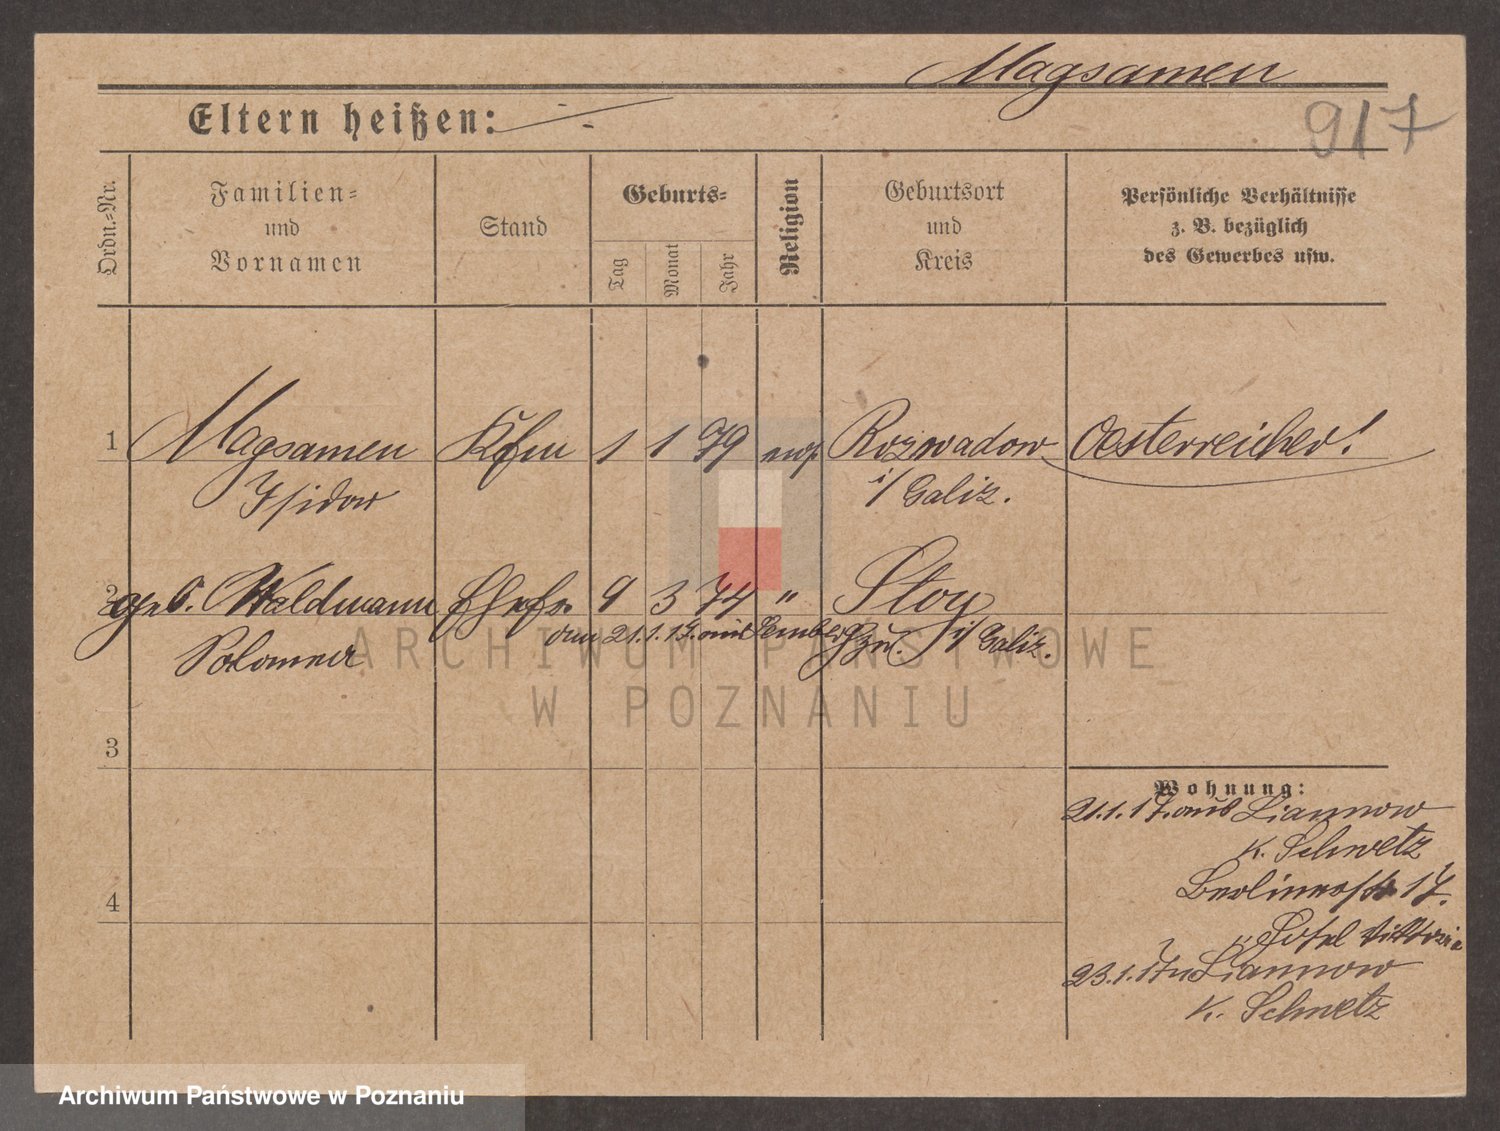 Magsamen
917
Eltern heißen:
Ordn.=Nr.
Familien=
und
Vornamen
Stand
Geburts=
Tag
Monat
Jahr
Religion
Geburtsort
und
Kreis
Persönliche Verhältnisse
z. B. bezüglich
des Gewerbes usw.
1 Magsamen Kfm 1 1 79 Rozwadow Oesterreicher!
Isidor i/ Galiz.
2 geb. Waldmann Ehefr. 9 3 74 "
am 21.1.17. aus Lemberg i/ Galiz.
ARCHIWUM PAŃSTWOWE
W POZNANIU
3
4
Wohnung:
21.1.17. aus Liannow
K. Schwetz
Berlinerstr 17.
Hotel Viktoria
23.1.17 n Liannow
K. Schwetz
Archiwum Państwowe w Poznaniu